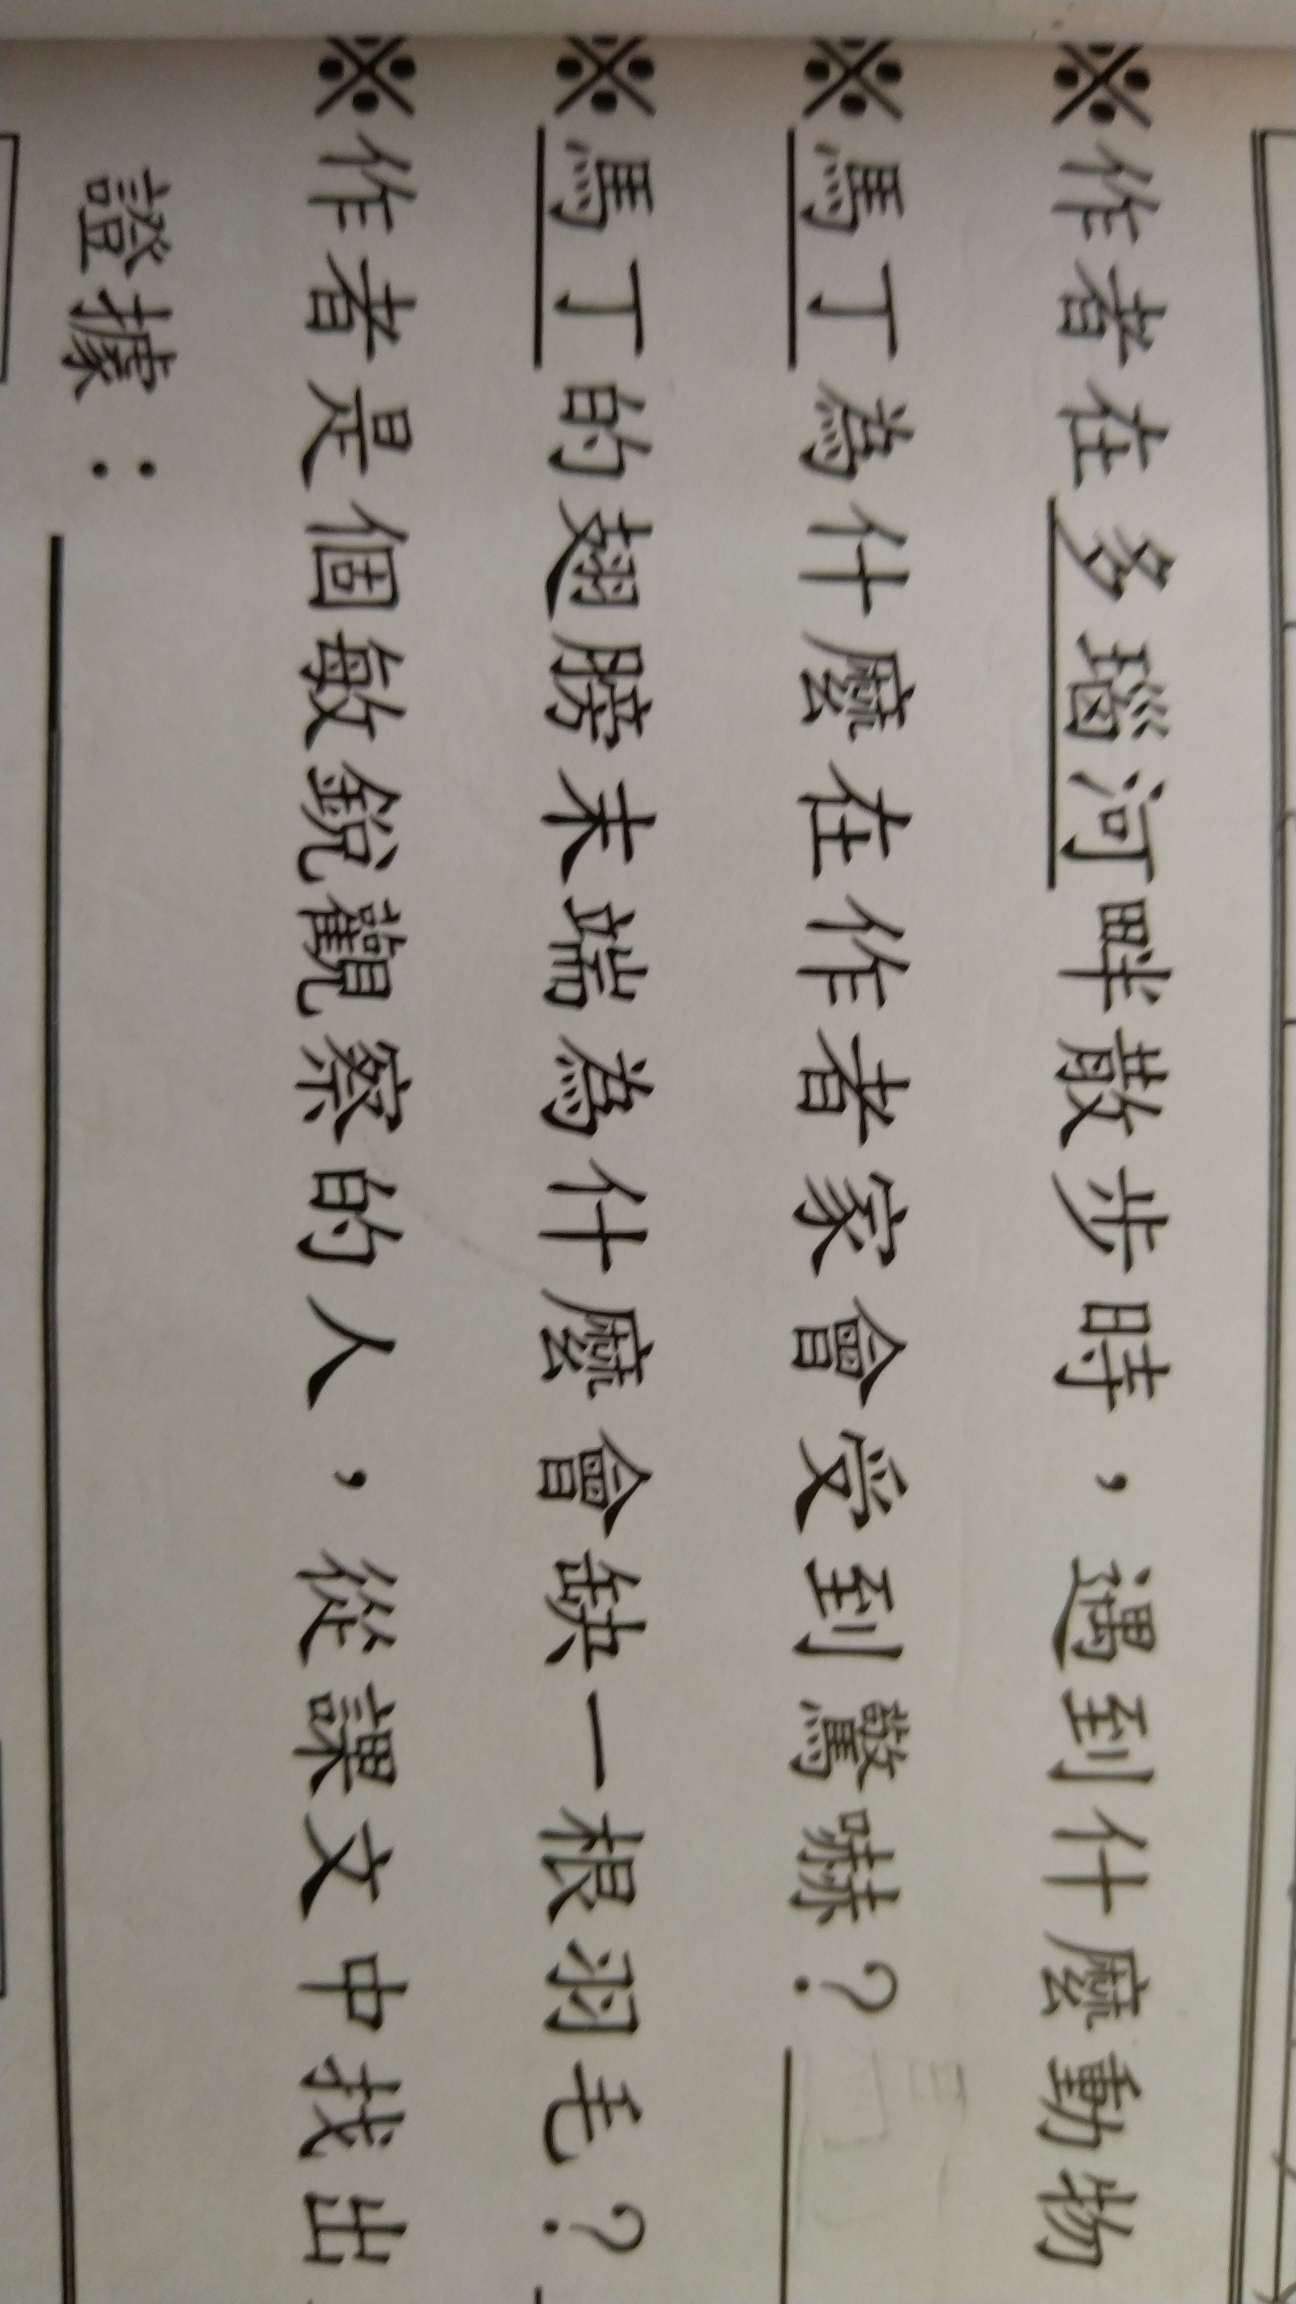 ※作者在多瑙河畔散步時，遇到什麼動物
※馬丁為什麼在作者家會受到驚嚇？
※馬丁的翅膀末端為什麼會缺一根羽毛？
※作者是個敏銳觀察的人，從課文中找出
證據：